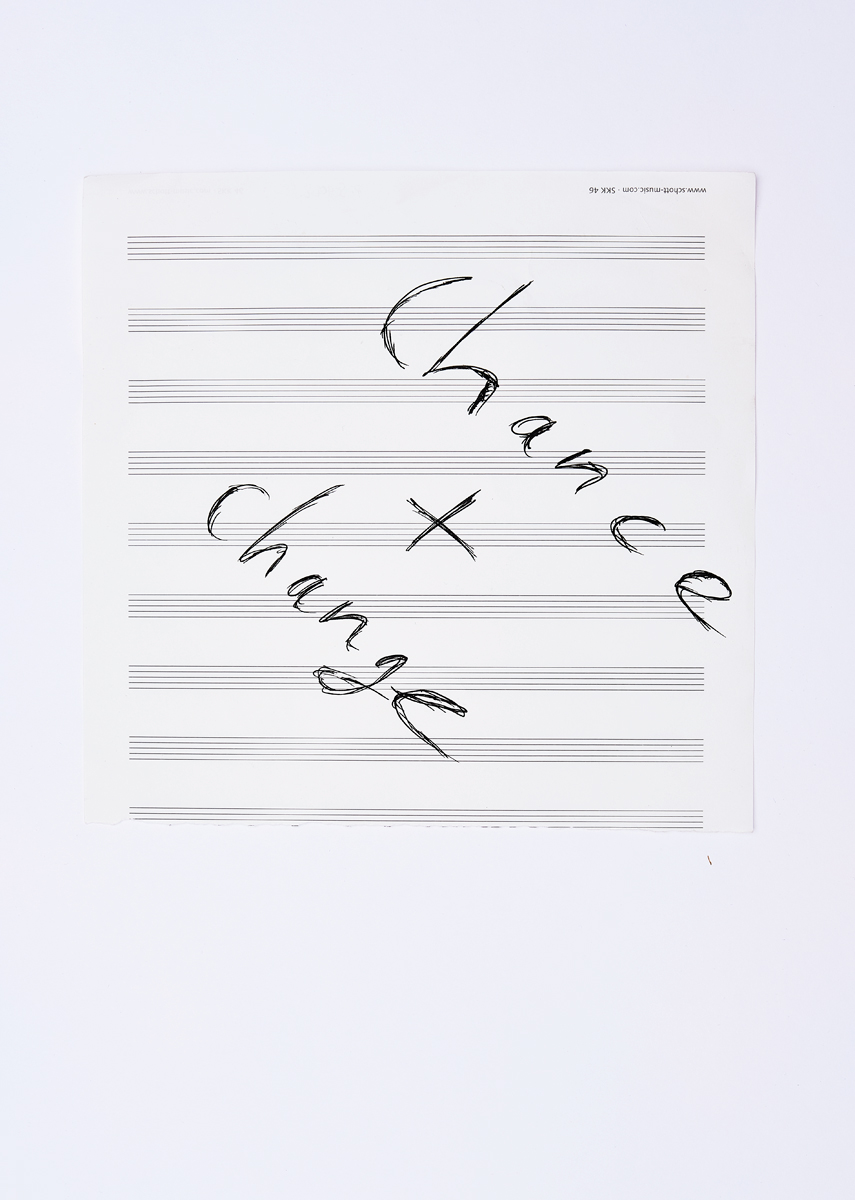 www.schott-music.com · SKK 46
Chance
X
Change